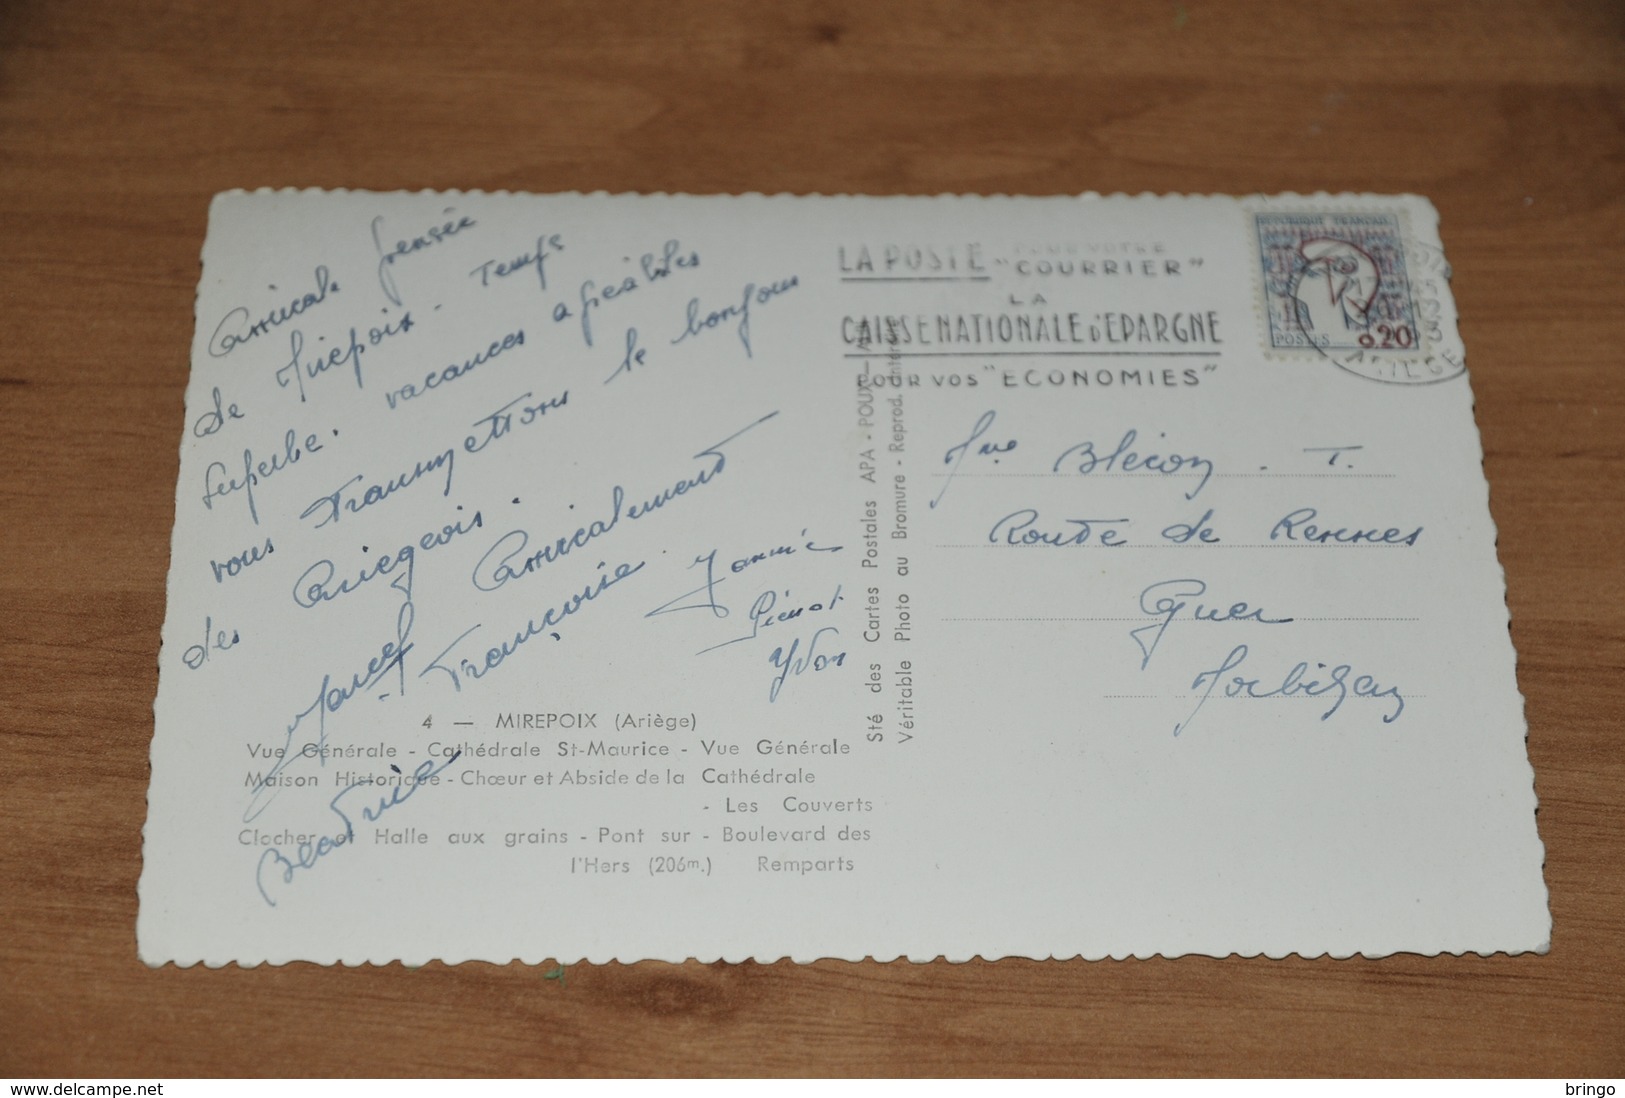 Amicale pensée
de Mirepoix. Temps
superbe. vacances agréables
vous Transmettons le bonjour
des Ariegeois.
Amicalement
Marcel Françoise Yannick
Pierrot
Yvon
Beatrice
4 — MIREPOIX (Ariège)
Vue Générale - Cathédrale St-Maurice - Vue Générale
Maison Historique - Chœur et Abside de la Cathédrale
- Les Couverts
Clocher et Halle aux grains - Pont sur - Boulevard des
l'Hers (206m.) Remparts
Sté des Cartes Postales APA - POUX -
Véritable Photo au Bromure - Reprod. interdite
LA POSTE POUR VOTRE "COURRIER"
LA
CAISSE NATIONALE D'EPARGNE
POUR VOS "ECONOMIES"
REPUBLIQUE FRANÇAISE
POSTES 0,20
ARIEGE
Mme Blécon. T.
Route de Rennes
Guer
Morbihan
www.delcampe.net
bringo